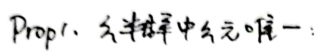 Prop1. 幺半群中幺元唯一: